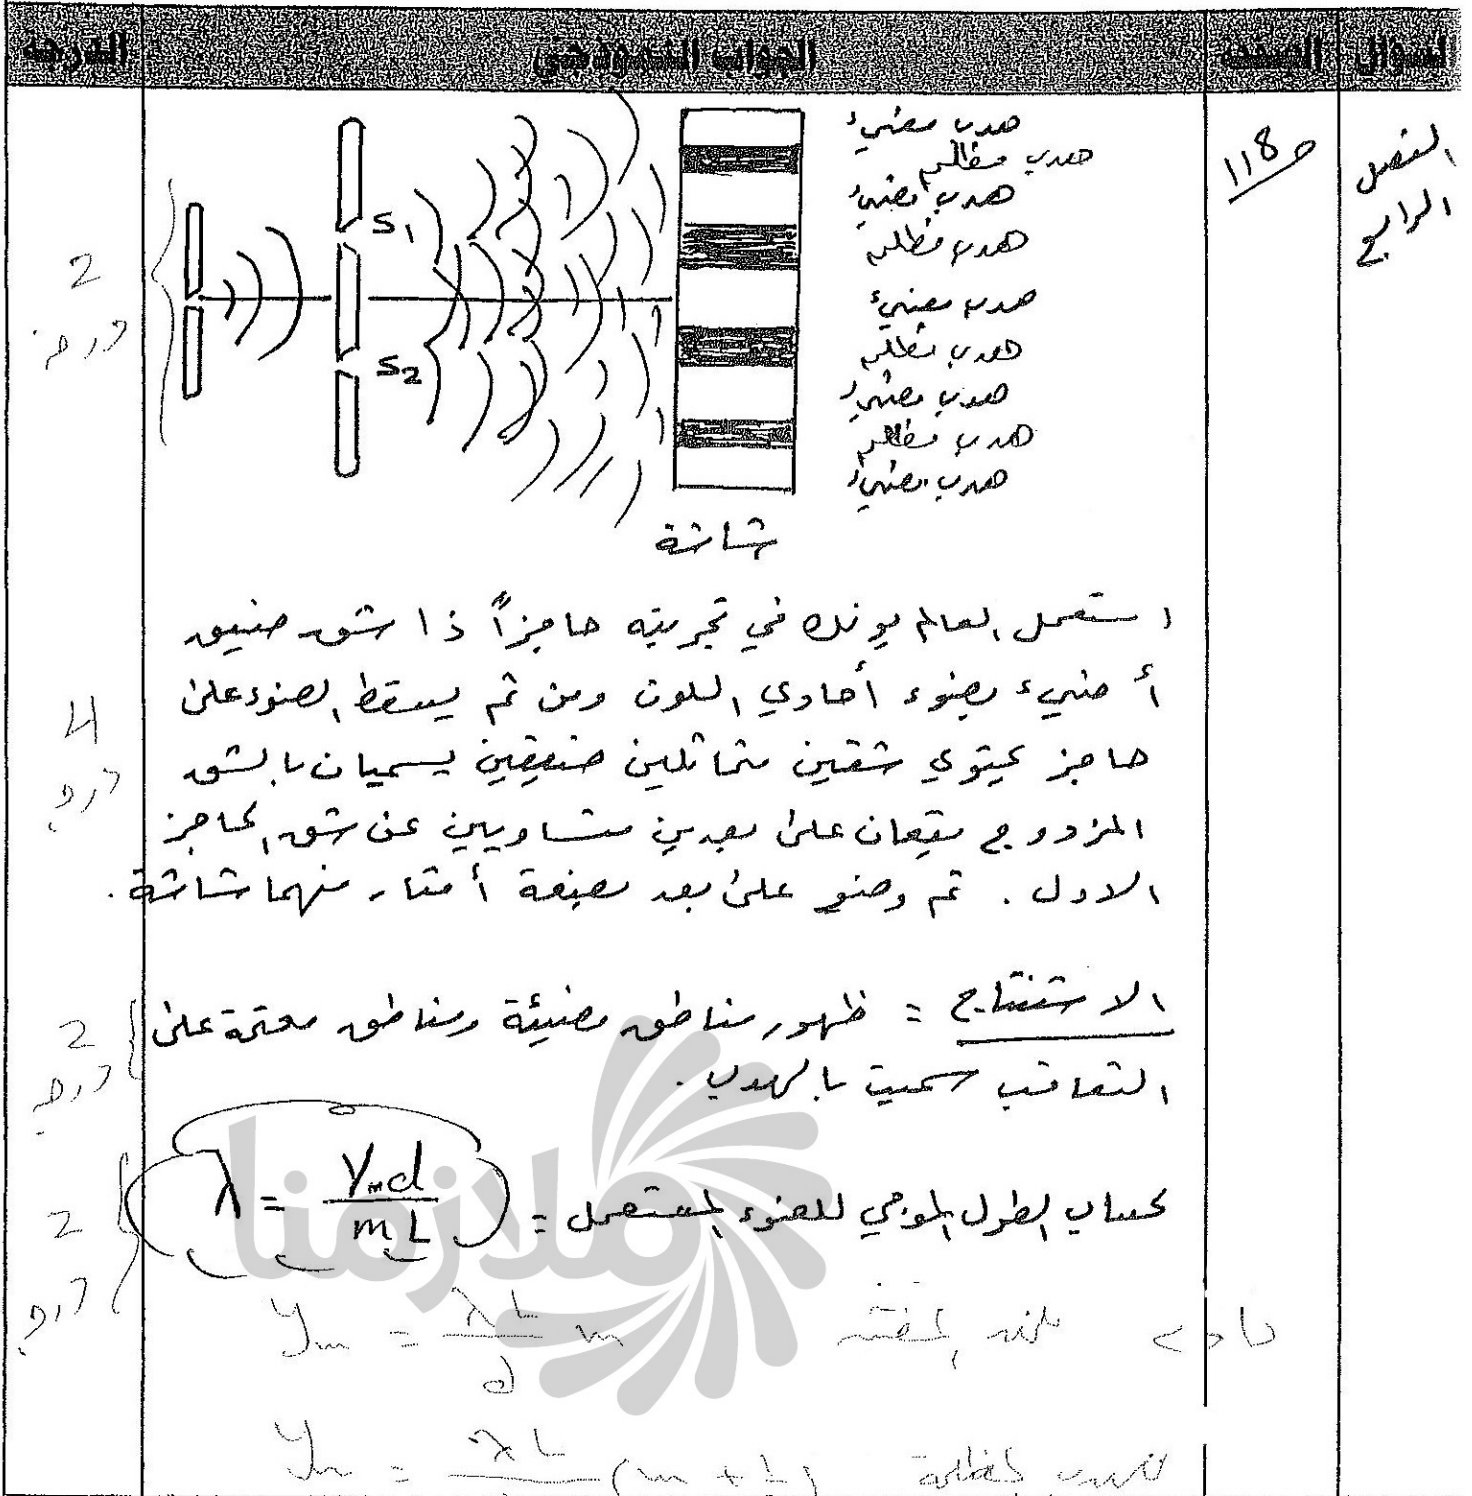 السؤال الصفحة الجواب النموذجي الدرجة
الفصل
الرابع
ص 118
هدب مضيء
هدب مظلم
هدب مضيء
هدب مظلم
هدب مضيء
هدب مظلم
هدب مضيء
هدب مظلم
هدب مضيء
S1
S2
2
درجة
شاشة
استعمل العالم يونك في تجربته حاجزاً ذا شق ضيق
أضيء بضوء أحادي اللون ومن ثم يسقط الضوء على
حاجز يحتوي شقين متماثلين ضيقين يسميان بالشق
المزدوج يقعان على بعدين متساويين عن شق الحاجز
الاول . ثم وضع على بعد بضعة أمتار منهما شاشة .
4
درجة
الاستنتاج = ظهور مناطق مضيئة ومناطق معتمة على
التعاقب سميت بالهدب .
2
درجة
لحساب الطول الموجي للضوء المستعمل = λ = Ymd / mL
2
درجة
ملازمنا
ym = λL/d m
للهدب المظلمة ym = λL (m + ½)